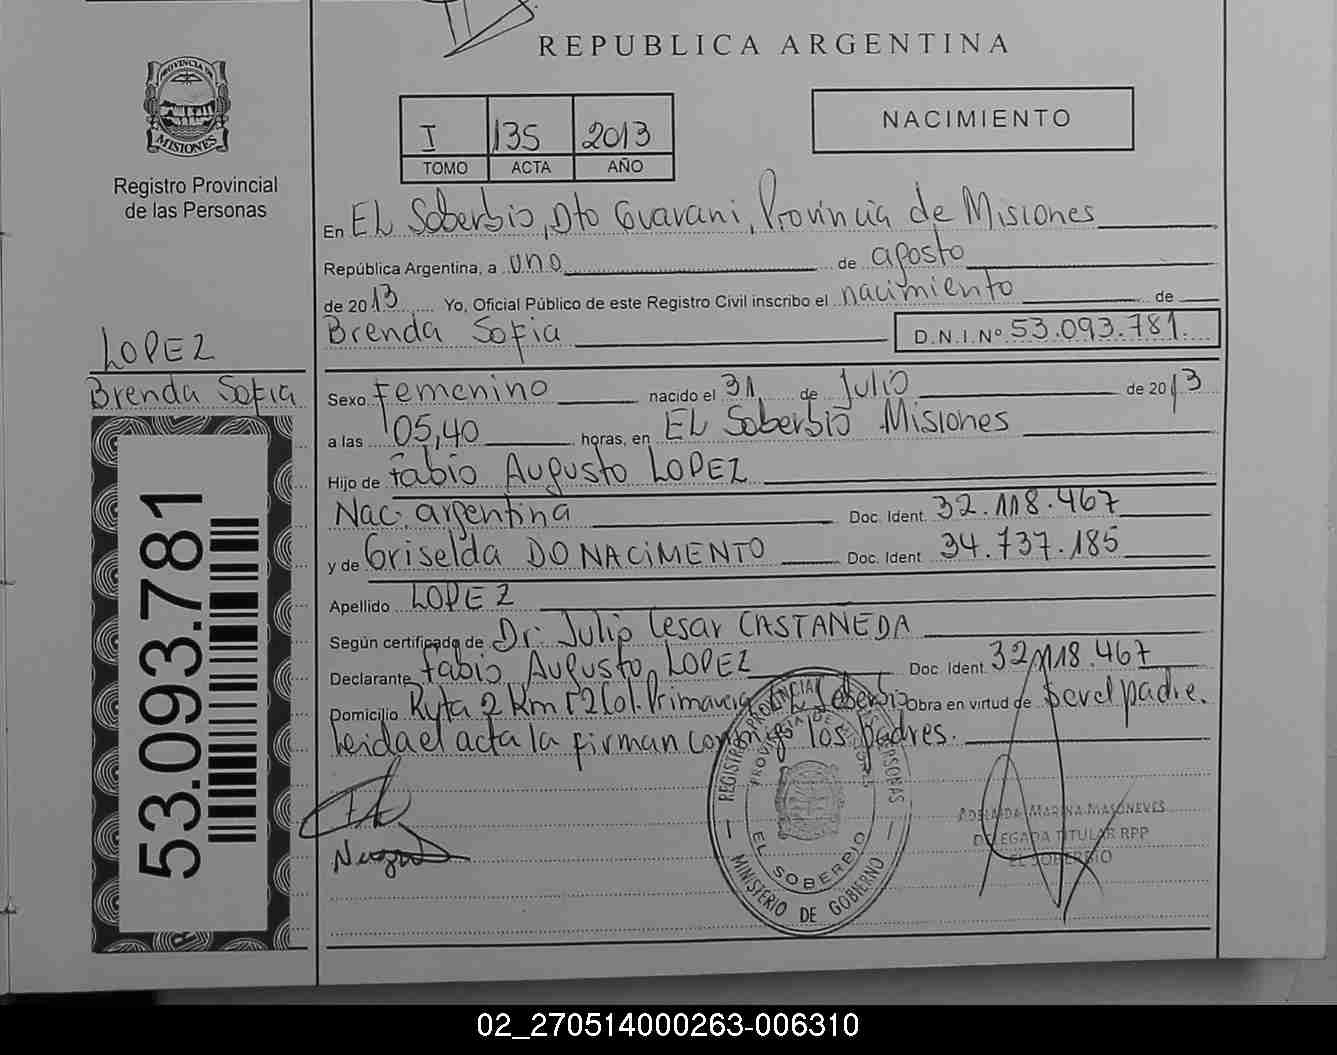 REPUBLICA ARGENTINA
PROVINCIA DE
MISIONES
Registro Provincial
de las Personas
I 135 2013
TOMO ACTA AÑO
NACIMIENTO
En EL Soberbio, Dto Guarani, Provincia de Misiones
República Argentina, a uno de agosto
de 2013 Yo, Oficial Público de este Registro Civil inscribo el nacimiento de
Brenda Sofia D.N.I.Nº 53.093.781.
LOPEZ
Brenda Sofia
Sexo Femenino nacido el 31 de Julio de 2013
a las 05,40 horas, en EL Soberbio Misiones
Hijo de Fabio Augusto LOPEZ
Nac. argentina Doc. Ident. 32.118.467
y de Griselda DO NACIMENTO Doc. Ident. 34.737.185
Apellido LOPEZ
Según certificado de Dr. Julio Cesar CASTANEDA
Declarante Fabio Augusto LOPEZ Doc. Ident. 32.118.467
Domicilio Ruta 2 Km Col. Primavera Soberbio Obra en virtud de ser el padre.
Leida el acta la firman conmigo los padres.
53.093.781
REGISTRO PROVINCIAL DE LAS PERSONAS
PROVINCIA DE MISIONES
EL SOBERBIO
MINISTERIO DE GOBIERNO
ADELAIDA MARINA MASONEVES
DELEGADA TITULAR RPP
EL SOBERBIO
02_270514000263-006310